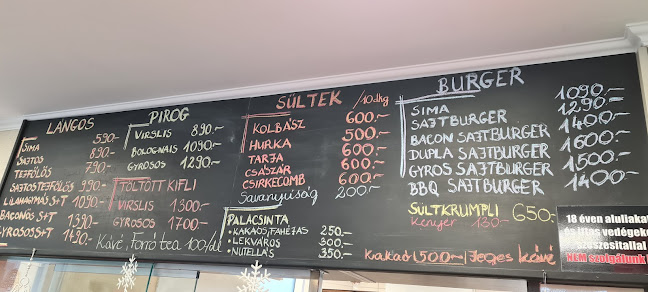 LÁNGOS
SIMA 590.-
SAJTOS 890.-
TEJFÖLÖS 790.-
SAJTOSTEJFÖLÖS 990.-
LILAHAGYMÁS S+T 1090.-
BACONÖS S+T 1390.-
GYROSOS S+T 1490.-
Kávé, forró tea 100/dl
PIROG
VIRSLIS 890.-
BOLOGNAIS 1090.-
GYROSOS 1290.-
TÖLTÖTT KIFLI
VIRSLIS 1300.-
GYROSOS 1700.-
SÜLTEK /10dkg
KOLBÁSZ 600.-
HURKA 500.-
TARJA 600.-
CSÁSZÁR 600.-
CSIRKECOMB 600.-
Savanyúság 200.-
PALACSINTA
• KAKAÓS/FAHÉJAS 250.-
• LEKVÁROS 300.-
• NUTELLÁS 350.-
BURGER
SIMA 1090.-
SAJTBURGER 1290.-
BACON SAJTBURGER 1400.-
DUPLA SAJTBURGER 1600.-
GYROS SAJTBURGER 1500.-
BBQ SAJTBURGER 1400.-
SÜLTKRUMPLI 650.-
Kenyér 130.-
Kakaó 500.-/Jeges kávé
18 éven aluliakat
és ittas vendégeket
szeszesitallal
NEM szolgálunk